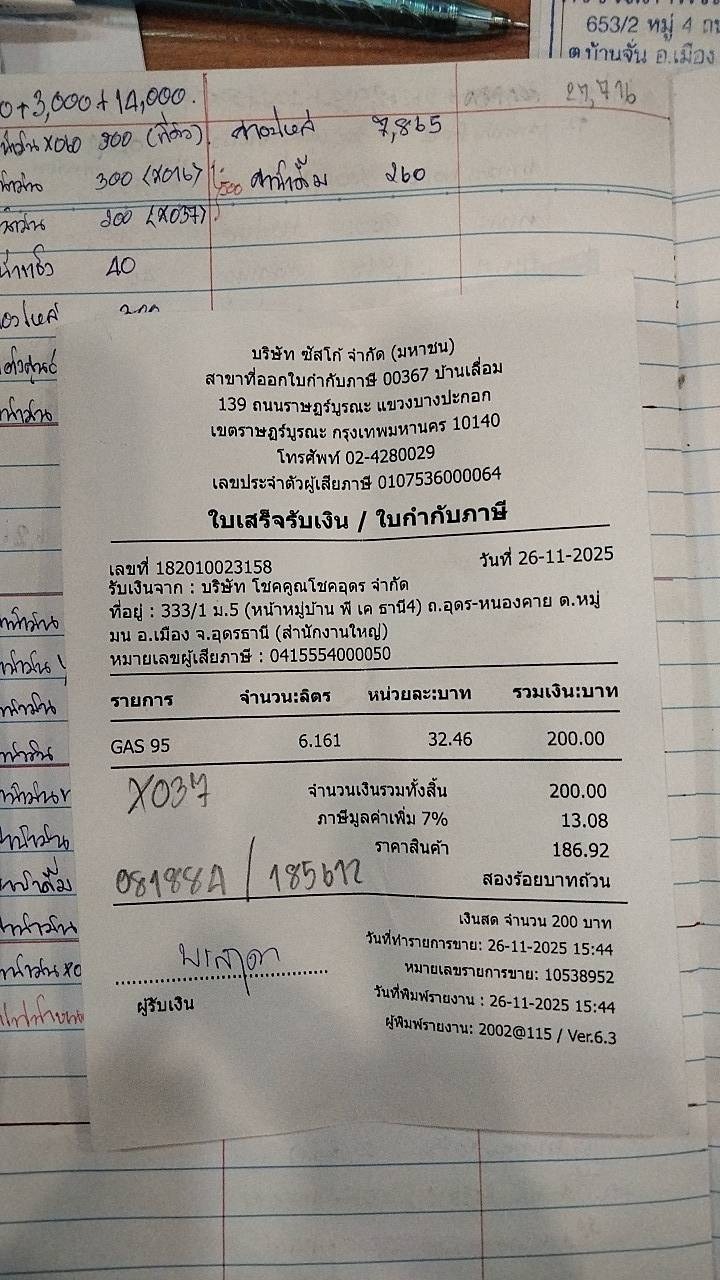 653/2 หมู่ 4 ถ
ต.บ้านจั่น อ.เมือง
0+3,000+14,000.
27,716
น้ำมัน X060 300
7,865
น้ำมัน 300 (X016)
ค่าน้ำดื่ม 260
น้ำมัน 200 (X037)
40
บริษัท ซัสโก้ จำกัด (มหาชน)
สาขาที่ออกใบกำกับภาษี 00367 บ้านเลื่อม
139 ถนนราษฎร์บูรณะ แขวงบางปะกอก
เขตราษฎร์บูรณะ กรุงเทพมหานคร 10140
โทรศัพท์ 02-4280029
เลขประจำตัวผู้เสียภาษี 0107536000064
ใบเสร็จรับเงิน / ใบกำกับภาษี
เลขที่ 182010023158 วันที่ 26-11-2025
รับเงินจาก : บริษัท โชคคูณโชคอุดร จำกัด
ที่อยู่ : 333/1 ม.5 (หน้าหมู่บ้าน พี เค ธานี4) ถ.อุดร-หนองคาย ต.หมู
มน อ.เมือง จ.อุดรธานี (สำนักงานใหญ่)
หมายเลขผู้เสียภาษี : 0415554000050
รายการ จำนวน:ลิตร หน่วยละ:บาท รวมเงิน:บาท
GAS 95 6.161 32.46 200.00
X037
จำนวนเงินรวมทั้งสิ้น 200.00
ภาษีมูลค่าเพิ่ม 7% 13.08
ราคาสินค้า 186.92
08188A / 185612
สองร้อยบาทถ้วน
เงินสด จำนวน 200 บาท
วันที่ทำรายการขาย: 26-11-2025 15:44
หมายเลขรายการขาย: 10538952
วันที่พิมพ์รายงาน : 26-11-2025 15:44
ผู้รับเงิน
ผู้พิมพ์รายงาน: 2002@115 / Ver.6.3
น้ำมัน
น้ำมัน
น้ำมัน
น้ำมัน
น้ำมัน